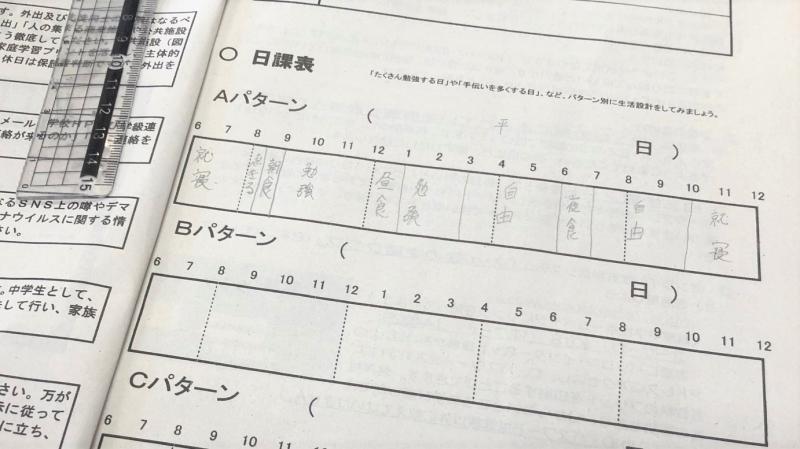 す。外出及び
なるべ
出」「人の集
公共施設
う徹底して
施設（図
家庭学習プ
主体的
休日は保護
外出を
10
11
12
13
14
15
メール
学校HP
級連
絡が
連絡を
なるSNS上の噂やデマ
ナウイルスに関する情
さい。
。中学生として、
して行い、家族
さい。万が
示に従って
に立ち、
○ 日課表
「たくさん勉強する日」や「手伝いを多くする日」、など、パターン別に生活設計をしてみましょう。
Aパターン （ 平 日 ）
6 7 8 9 10 11 12 1 2 3 4 5 6 7 8 9 10 11 12
就寝 おきる 朝食 勉強 昼食 勉強 自由 夜食 自由 就寝
Bパターン （ 日 ）
6 7 8 9 10 11 12 1 2 3 4 5 6 7 8 9 10 11 12
Cパターン （ 日
6 7 8 9 10 11 12 1